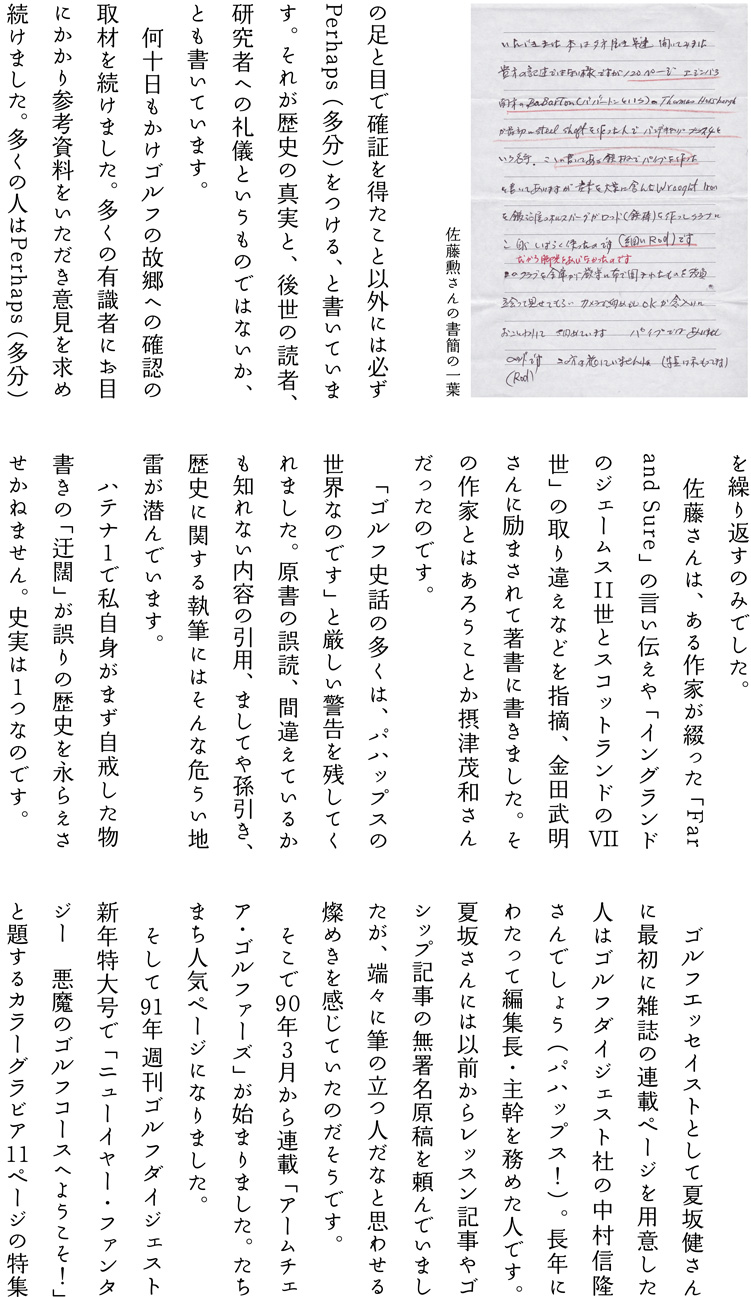 の足と目で確証を得たこと以外には必ず
Perhaps（多分）をつける、と書いていま
す。それが歴史の真実と、後世の読者、
研究者への礼儀というものではないか、
とも書いています。
何十日もかけゴルフの故郷への確認の
取材を続けました。多くの有識者にお目
にかかり参考資料をいただき意見を求め
続けました。多くの人はPerhaps（多分）
佐藤勲さんの書簡の一葉
を繰り返すのみでした。
佐藤さんは、ある作家が綴った「Far
and Sure」の言い伝えや「イングランド
のジェームスII世とスコットランドのVII
世」の取り違えなどを指摘、金田武明
さんに励まされて著書に書きました。そ
の作家とはあろうことか摂津茂和さん
だったのです。
「ゴルフ史話の多くは、パハップスの
世界なのです」と厳しい警告を残してく
れました。原書の誤読、間違えているか
も知れない内容の引用、ましてや孫引き、
歴史に関する執筆にはそんな危うい地
雷が潜んでいます。
ハテナ1で私自身がまず自戒した物
書きの「迂闊」が誤りの歴史を永らえさ
せかねません。史実は1つなのです。
ゴルフエッセイストとして夏坂健さん
に最初に雑誌の連載ページを用意した
人はゴルフダイジェスト社の中村信隆
さんでしょう（パハップス！）。長年に
わたって編集長・主幹を務めた人です。
夏坂さんには以前からレッスン記事やゴ
シップ記事の無署名原稿を頼んでいまし
たが、端々に筆の立つ人だなと思わせる
燦めきを感じていたのだそうです。
そこで90年3月から連載「アームチェ
ア・ゴルファーズ」が始まりました。たち
まち人気ページになりました。
そして91年週刊ゴルフダイジェスト
新年特大号で「ニューイヤー・ファンタ
ジー　悪魔のゴルフコースへようこそ！」
と題するカラーグラビア11ページの特集